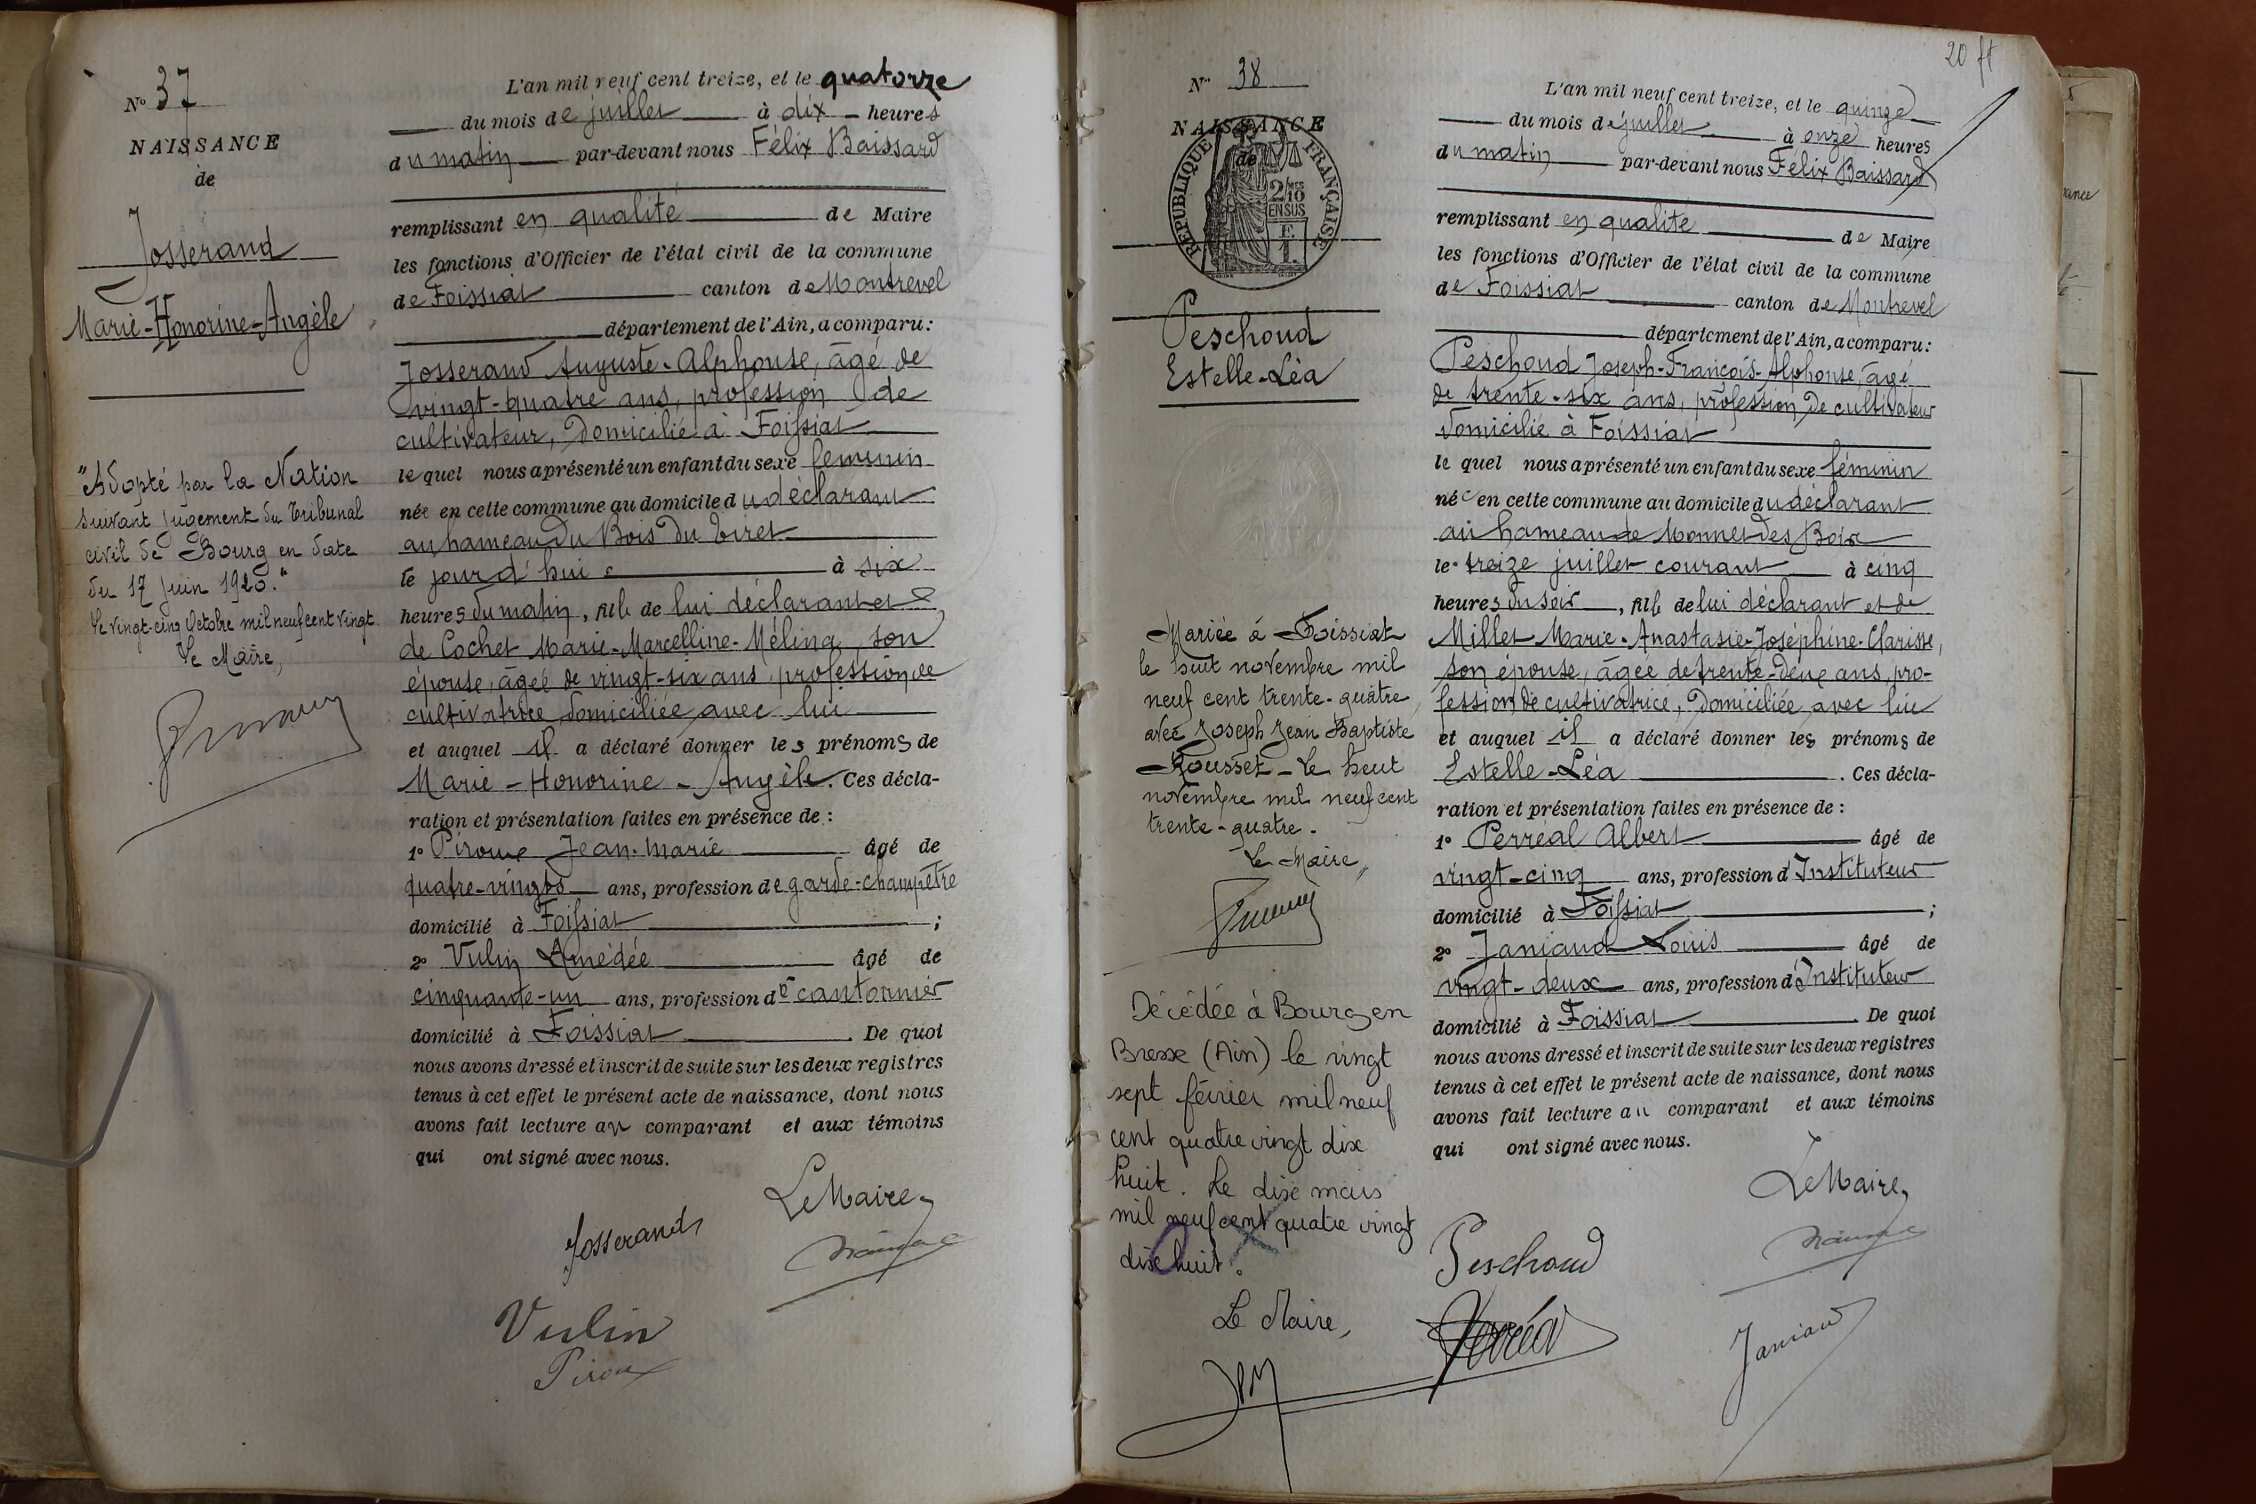 N° 37
NAISSANCE
de
Josserand
Marie-Honorine-Angèle
"Adopté par la Nation
suivant jugement du Tribunal
civil de Bourg en date
du 17 Juin 1920."
Le vingt-cinq Octobre mil neuf cent vingt
Le Maire,
L'an mil neuf cent treize, et le quatorze
du mois de juillet à dix heures
du matin par-devant nous Félix Baissard
remplissant en qualité de Maire
les fonctions d'Officier de l'état civil de la commune
de Foissiat canton de Montrevel
département de l'Ain, a comparu:
Josserand Auguste-Alphonse, âgé de
vingt-quatre ans, profession de
cultivateur, domicilié à Foissiat
lequel nous a présenté un enfant du sexe féminin
née en cette commune au domicile du déclarant
au hameau du Bois du Tiret
le jour d'hui à six
heures du matin, fille de lui déclarant et
de Cochet Marie-Marcelline-Mélina, son
épouse, âgée de vingt-six ans, profession de
cultivatrice domiciliée avec lui
et auquel il a déclaré donner les prénoms de
Marie-Honorine-Angèle. Ces décla-
ration et présentation faites en présence de:
1° Piroux Jean-Marie âgé de
quatre-vingts ans, profession de garde-champêtre
domicilié à Foissiat ;
2° Vulin Amédée âgé de
cinquante-un ans, profession de cantonnier
domicilié à Foissiat. De quoi
nous avons dressé et inscrit de suite sur les deux registres
tenus à cet effet le présent acte de naissance, dont nous
avons fait lecture au comparant et aux témoins
qui ont signé avec nous.
Le Maire,
Josserand
Vulin
Piroux
20 ft
N° 38
NAISSANCE
de
REPUBLIQUE FRANÇAISE
2/10 EN SUS
Peschoud
Estelle-Léa
Mariée à Foissiat
le huit novembre mil
neuf cent trente-quatre,
avec Joseph Jean Baptiste
Rousset - Le huit
novembre mil neuf cent
trente-quatre.
Le Maire,
Décédée à Bourg en
Bresse (Ain) le vingt
sept février mil neuf
cent quatre vingt dix
huit. Le dix mars
mil neuf cent quatre vingt
dix huit.
Le Maire,
L'an mil neuf cent treize, et le quinze
du mois de juillet à onze heures
du matin par-devant nous Félix Baissard
remplissant en qualité de Maire
les fonctions d'Officier de l'état civil de la commune
de Foissiat canton de Montrevel
département de l'Ain, a comparu:
Peschoud Joseph-François-Alphonse, âgé
de trente-six ans, profession de cultivateur
domicilié à Foissiat
lequel nous a présenté un enfant du sexe féminin
née en cette commune au domicile du déclarant
au hameau de Monnet des Bois
le treize juillet courant à cinq
heures du soir, fille de lui déclarant et de
Millet Marie-Anastasie-Joséphine-Clarisse,
son épouse, âgée de trente-deux ans, pro-
fession de cultivatrice, domiciliée avec lui
et auquel il a déclaré donner les prénoms de
Estelle-Léa. Ces décla-
ration et présentation faites en présence de:
1° Perréal Albert âgé de
vingt-cinq ans, profession d'Instituteur
domicilié à Foissiat ;
2° Janiaud Louis âgé de
vingt-deux ans, profession d'Instituteur
domicilié à Foissiat. De quoi
nous avons dressé et inscrit de suite sur les deux registres
tenus à cet effet le présent acte de naissance, dont nous
avons fait lecture au comparant et aux témoins
qui ont signé avec nous.
Le Maire,
Peschoud
Perréal
Janiaud